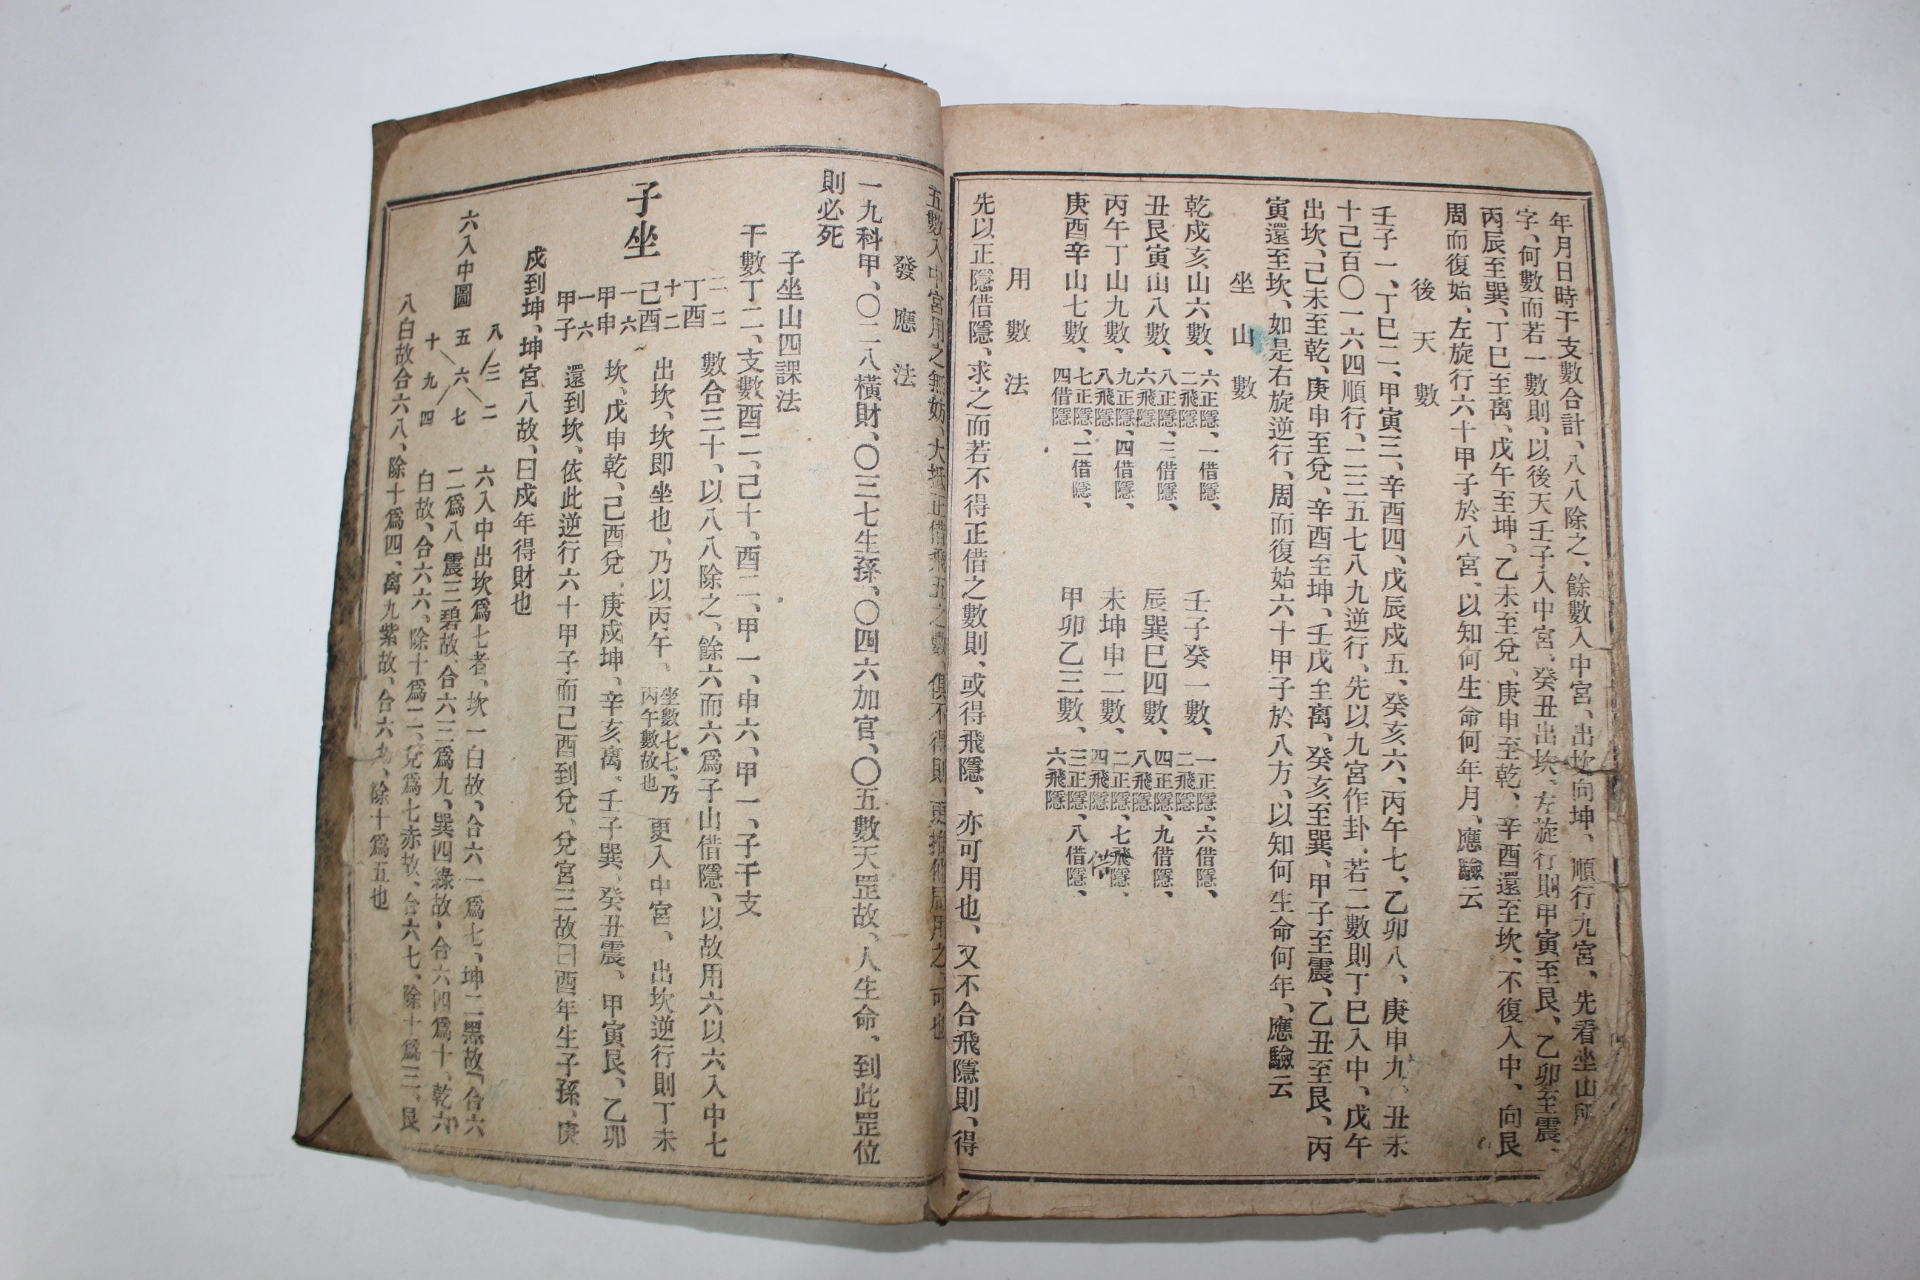 年月日時干支數合計、八八除之、餘數入中宮、出坎向坤、順行九宮、先看坐山所
字、何數而若一數則、以後天壬子入中宮、癸丑出坎、左旋行則甲寅至艮、乙卯至震、
丙辰至巽、丁巳至离、戊午至坤、乙未至兌、庚申至乾、辛酉還至坎、不復入中、向艮
周而復始、左旋行六十甲子於八宮、以知何生命何年月、應驗云
後天數
壬子一、丁巳二、甲寅三、辛酉四、戊辰戌五、癸亥六、丙午七、乙卯八、庚申九、丑未
十己百〇一六四順行、二三五七八九逆行、先以九宮作卦、若二數則丁巳入中、戊午
出坎、己未至乾、庚申至兌、辛酉至坤、壬戌至离、癸亥至巽、甲子至震、乙丑至艮、丙
寅還至坎、如是右旋逆行、周而復始六十甲子於八方、以知何生命何年、應驗云
坐山數
乾戌亥山六數、六正隱、一借隱、二飛隱 壬子癸一數、一正隱、六借隱、二飛隱
丑艮寅山八數、八正隱、三借隱、六飛隱 辰巽巳四數、四正隱、九借隱、八飛隱
丙午丁山九數、九正隱、四借隱、八飛隱 未坤申二數、二正隱、七飛隱、四飛隱 借
庚酉辛山七數、七正隱、二借隱、四借隱 甲卯乙三數、三正隱、八借隱、六飛隱
用數法
先以正隱借隱、求之而若不得正借之數則、或得飛隱、亦可用也、又不合飛隱則、得
五數入中宮用之無妨、大抵正借飛五之數、俱不得則、更推他局用之、可也
發應法
一九科甲、〇二八橫財、〇三七生孫、〇四六加官、〇五數天罡故、人生命、到此罡位
則必死
子坐山四課法
子坐
干數丁二、支數酉二、己十、酉二、甲一、申六、甲一、子千支
二二 丁酉
十二 己酉
一六 甲申
一六 甲子
數合三十、以八八除之、餘六而六爲子山借隱、以故用六以六入中七
出坎、坎即坐也、乃以丙午、坐數七七、乃丙午數故也 更入中宮、出坎逆行則丁未
坎、戊申乾、己酉兌、庚戌坤、辛亥离、壬子巽、癸丑震、甲寅艮、乙卯
還到坎、依此逆行六十甲子而己酉到兌、兌宮三故曰酉年生子孫、庚
戌到坤、坤宮八故、曰戌年得財也
六入中圖
八 三 二
五 六 七
十 九 四
六入中出坎爲七者、坎一白故、合六一爲七、坤二黑故、合六
二爲八 震三碧故、合六三爲九、巽四綠故、合六四爲十、乾六
白故、合六六、除十爲二、兌爲七赤故、合六七、除十爲三、艮
八白故合六八、除十爲四、离九紫故、合六九、除十爲五也